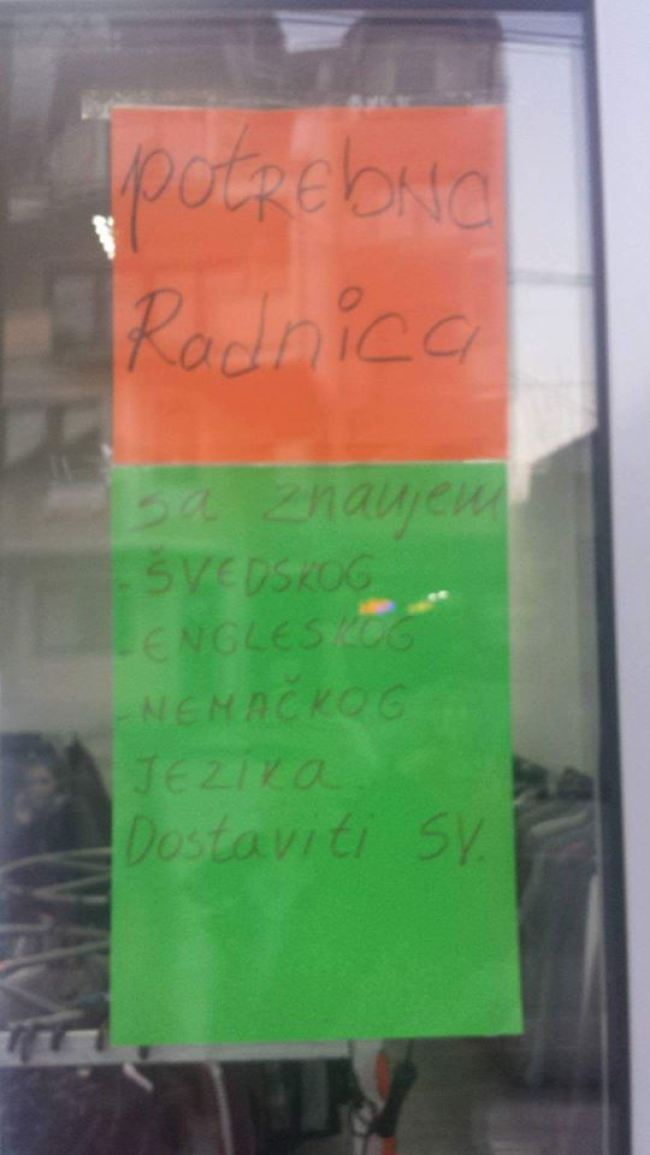 potREbNa
Radnica
sa znanjem
- ŠVEDSKOG
- ENGLESKOG
- NEMAČKOG
JEZIKa
Dostaviti SV.